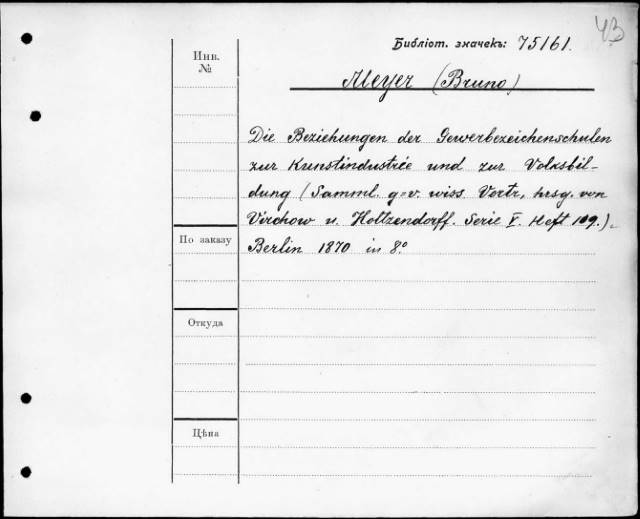 43
Библіот. значекъ: 75161.
Инв.
№
Meyer (Bruno)
Die Beziehungen der Gewerbezeichenschulen
zur Kunstindustrie und zur Volksbil-
dung (Samml. g=v. wiss. Vortr, hrsg. von
Virchow u. Holtzendorff. Serie V. Heft 109.).
По заказу
Berlin 1870 in 8.º
Откуда
Цѣна